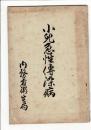 小児急性傳染病
内務省衛生局